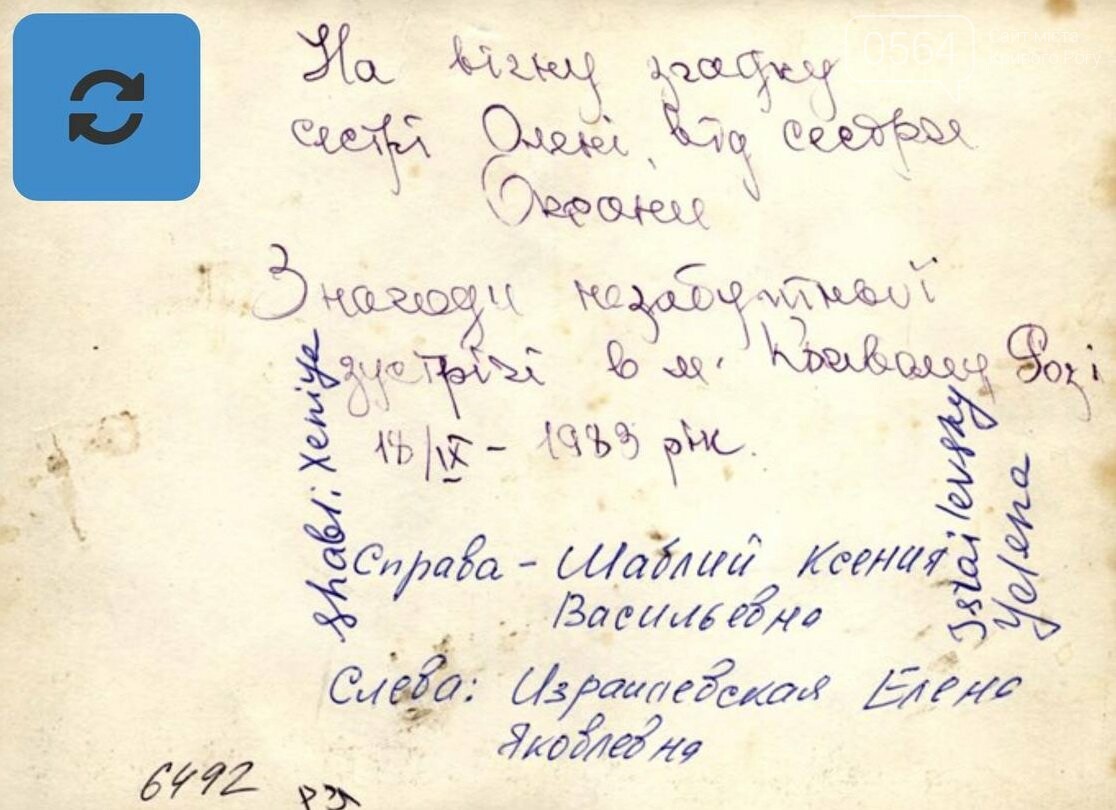 На вічну згадку
сестрі Олені, від сестри
Оксани
З нагоди незабутньої
зустрічі в м. Кривому Розі
18/IX - 1983 рік.
Shabli: Xeniya
Israilevsky
Yelena
Справа - Шаблий Ксения
Васильевна
Слева: Израилевская Елена
Яковлевна
6492
0564